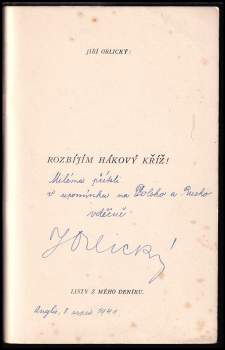 JIŘÍ ORLICKÝ:
ROZBÍJÍM HÁKOVÝ KŘÍŽ!
Milému příteli
v upomínku na Polsko a Rusko
vděčně
JOrlický
LISTY Z MÉHO DENÍKU.
Anglie, 8 1941